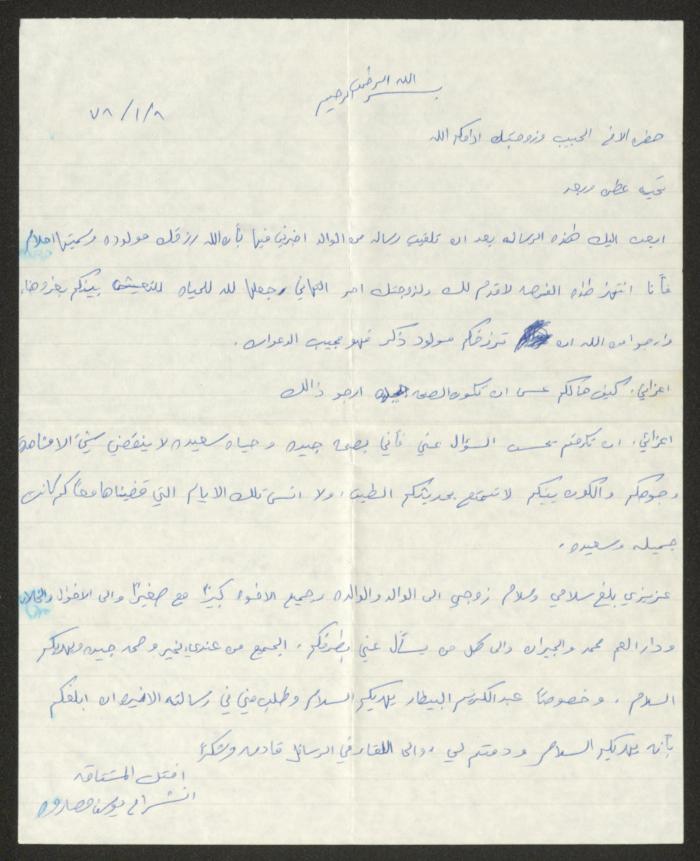 بسم الله الرحمن الرحيم
٧٨/١/٨
حضرة الاخ الحبيب وزوجتك ادامكم الله
تحيه عطره وبعد
ابعث اليك هذه الرساله بعد ان تلقيت رساله من الوالد اخبرني فيها بأن الله رزقك مولوده وسميتها احلام
فأنا انتهز هذه الفرصه لاقدم لك ولزوجتك احر التهاني وجعلها لله للحياه لتعيش بينكم
وارجوا من الله ان ترزقكم مولود ذكر فهو مجيب الدعوات.
اعزائي: كيف حالكم عسى ان تكون الصحه جيده ارجو ذالك
اعزائي: ان تكرمتم بحسن السؤال عني فأني بصحه جيده وحياه سعيده لا ينقصني شيئ الا مشاهدة
وجوهكم والكون بينكم لاتمتع بحديثكم الطيب، ولا انسى تلك الايام التي قضيناها معاً كم كانت
جميله وسعيده.
عزيزي بلغ سلامي وسلام زوجتي الى الوالد والوالده وجميع الاخوه كبيرًا مع صغيرًا والى الاخوال والخالات
ودار العم محمد والجيران والى كل من يسأل عني بطرفكم. الجميع من عندي بخير وصحه جيده ويهديكم
السلام. وخصوصاً عبد الكريم البيطار يهديكم السلام وطلب مني في رسالته الاخيره ان ابلغكم
بأنه يهديكم السلام ودمتم لي. والى اللقاء في الرسائل قادمه وشكرًا
اختك المشتاقه